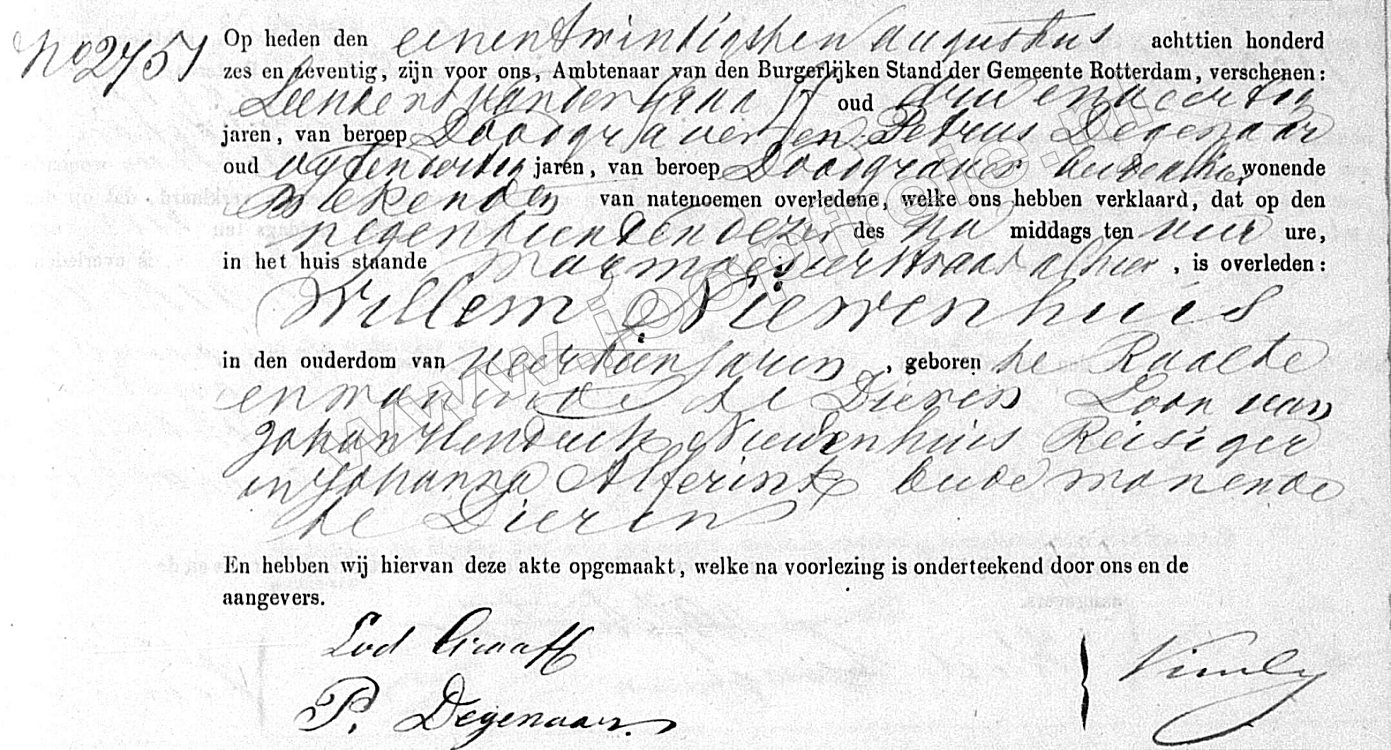 No 2757 Op heden den eenentwintigsten augustus achttien honderd
zes en zeventig, zijn voor ons, Ambtenaar van den Burgerlijken Stand der Gemeente Rotterdam, verschenen:
Leendert van der Graaff oud drie en veertig
jaren, van beroep Doodgraver en Petrus Degenaar
oud vijfenveertig jaren, van beroep Doodgraver beide alhier wonende
Bekenden van natenoemen overledene, welke ons hebben verklaard, dat op den
negentienden dezer des Na middags ten vier ure,
in het huis staande alhier, is overleden:
Willem Niewenhuis
in den ouderdom van veertien jaren, geboren te Raalte
en wonende te Dieren Zoon van
Johan Hendrik Niewenhuis Reisiger
en Johanna Alferink beide wonende
te Dieren
En hebben wij hiervan deze akte opgemaakt, welke na voorlezing is onderteekend door ons en de
aangevers.
Graaff
P. Degenaar
www.jooplrois.nl